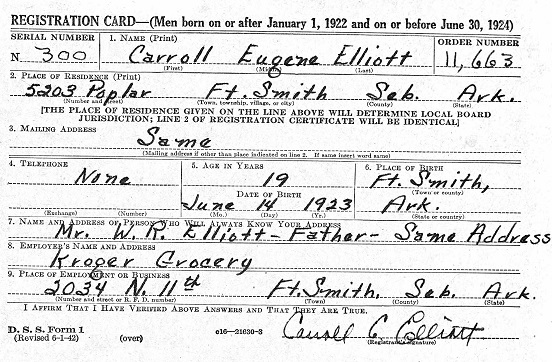 REGISTRATION CARD—(Men born on or after January 1, 1922 and on or before June 30, 1924)
SERIAL NUMBER 1. NAME (Print) ORDER NUMBER
N 300 Carroll Eugene Elliott 11,663
(First) (Middle) (Last)
2. PLACE OF RESIDENCE (Print)
5203 Poplar Ft. Smith Seb. Ark.
(Number and street) (Town, township, village, or city) (County) (State)
[THE PLACE OF RESIDENCE GIVEN ON THE LINE ABOVE WILL DETERMINE LOCAL BOARD
JURISDICTION; LINE 2 OF REGISTRATION CERTIFICATE WILL BE IDENTICAL]
3. MAILING ADDRESS
Same
(Mailing address if other than place indicated on line 2. If same insert word same)
4. TELEPHONE 5. AGE IN YEARS 6. PLACE OF BIRTH
None 19 Ft. Smith,
(Town or county)
DATE OF BIRTH
June 14 1923 Ark.
(Exchange) (Number) (Mo.) (Day) (Yr.) (State or country)
7. NAME AND ADDRESS OF PERSON WHO WILL ALWAYS KNOW YOUR ADDRESS
Mr. W. R. Elliott - Father - Same Address
8. EMPLOYER'S NAME AND ADDRESS
Kroger Grocery
9. PLACE OF EMPLOYMENT OR BUSINESS
2034 N. 11th Ft. Smith, Seb. Ark.
(Number and street or R. F. D. number) (Town) (County) (State)
I AFFIRM THAT I HAVE VERIFIED ABOVE ANSWERS AND THAT THEY ARE TRUE.
D. S. S. Form 1
(Revised 6-1-42) (over) c16—21630-2 Carroll E Elliott
(Registrant's signature)